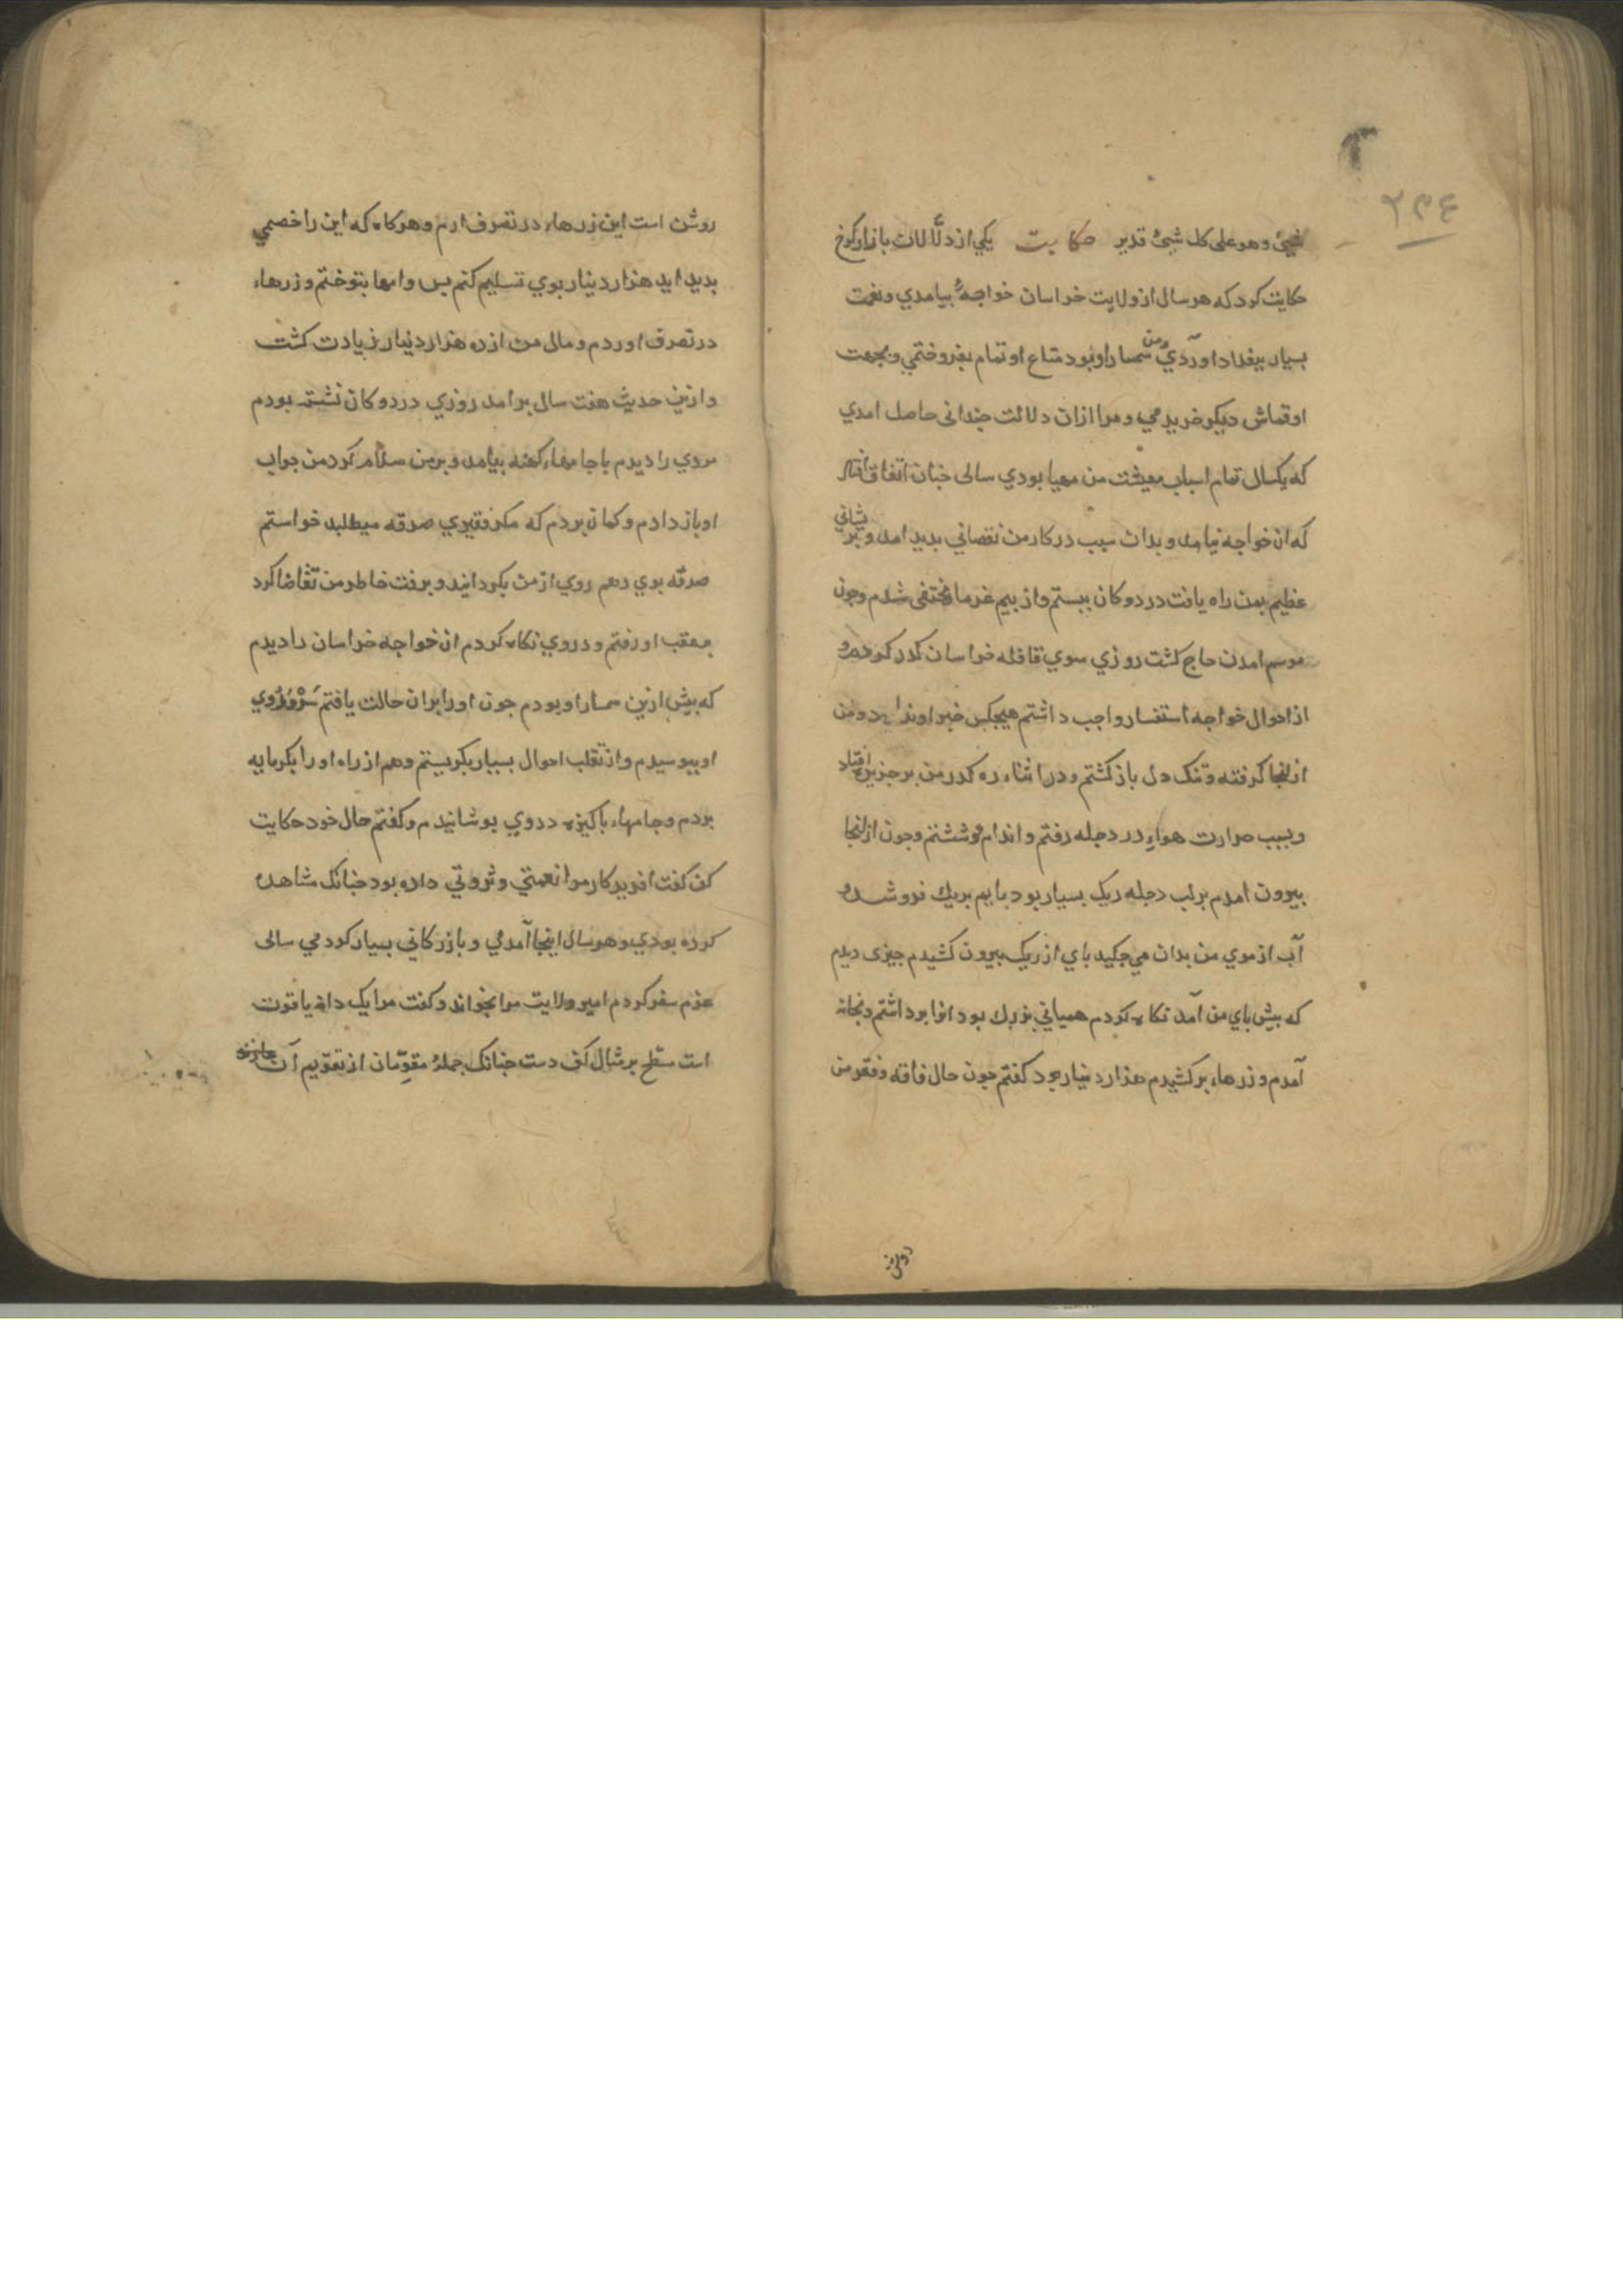 ۲۳٤
شیئ وهو علی کل شیئ قدیر حکایت یکی از دلّالان بازار کرخ
حکایت کرد که هر سال از ولایت خراسان خواجهٔ بیامدي ونعمت
بسیار ببغداد اوردي ومن سمسار او بودم متاع او تمام بفروختمي وبجهت
او قماش دیکر خریدمي ومرا ازان دلالت چندانی حاصل امدي
که یکسال تمام اسباب معیشت من مهیا بودي سالی چنان اتفاق افتاد
که ان خواجه نیامد وبدان سبب در کار من نقصاني بدید امد و بریشاني
عظیم بمن راه یافت در دوکان ببستم واز بیم غرما مختفی شدم وچون
موسم امدن حاج کشت روزي سوي قافله خراسان کذر کردم و
از احوال خواجه استفسار واجب داشتم هیچکس خبر او نداد ومن
ازانجا کرفته وتنک دل باز کشتم و در اثناء ره کذر من بر جزیره افتاد
وبسبب حرارت هواء در دجله رفتم واندام شستم وچون ازانجا
بیرون امدم بر لب دجله ریک بسیار بود بایم بریك فرو شد و
آب از موي من بدان می چکید باي از ریک بیرون کشیدم چیزی دیدم
که بیش باي من آمد نکاه کردم همیاني بزرك بود انرا برداشتم وبخانه
آمدم و زرهاء برکشیدم هزار دینار بود کفتم چون حال فاقه وفقر من
روشن
روشن است این زرهاء در تصرف ارم وهرکاه که این را خصمي
بدید اید هزار دینار بوي تسلیم کنم بس وامها بتوختم و زرهاء
در تصرف اوردم ومال من از ده هزار دینار زیادت کشت
وازین حدیث هفت سال برامد روزي در دوکان نشسته بودم
مردي را دیدم با جامهاء کهنه بیامد وبرمن سلام کرد من جواب
او باز دادم وکمان بردم که مکر فقیري صدقه میطلبد خواستم
صدقه بوي دهم روي از من بکردانید وبرفت خاطر من تقاضا کرد
بعقب او رفتم و در روي نکاه کردم ان خواجه خراسان را دیدم
که بیش ازین سمسار او بودم جون او را بران حالت یافتم سَرْوَرُوي
او ببوسیدم واز تقلب احوال بسیار بکریستم وهم از راه او را بکرمابه
بردم وجامهاء باکیزه در وي بوشانیدم وکفتم حال خود حکایت
کن کفت افریدکار مرا نعمتي وثروتي داده بود جنانک مشاهده
کرده بودي وهرسال اینجا آمدمي و بازرکاني بسیار کردمي سالی
عزم سفر کردم امیر ولایت مرا بخواند وکفت مرا یک دانه یاقوت
است سطح بر مثال کف دست جنانک جملهٔ مقوّمان از تقویم آن عاجزند